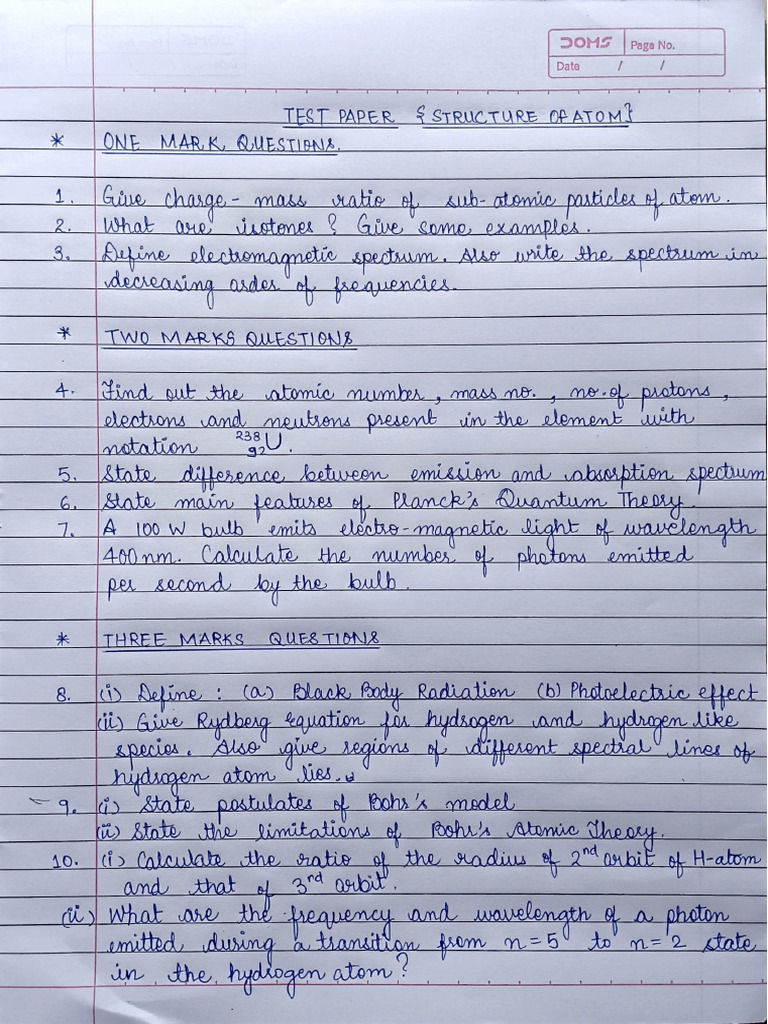 DOMS Page No.
Date / /
TEST PAPER {STRUCTURE OF ATOM}
* ONE MARK QUESTIONS.
1. Give charge - mass ratio of sub-atomic particles of atom.
2. What are isotones? Give some examples.
3. Define electromagnetic spectrum. Also write the spectrum in
decreasing order of frequencies.
* TWO MARKS QUESTIONS
4. Find out the atomic number, mass no., no. of protons,
electrons and neutrons present in the element with
notation ²³⁸₉₂U.
5. State difference between emission and absorption spectrum
6. State main features of Planck's Quantum Theory.
7. A 100 W bulb emits electro-magnetic light of wavelength
400nm. Calculate the number of photons emitted
per second by the bulb.
* THREE MARKS QUESTIONS
8. (i) Define : (a) Black Body Radiation (b) Photoelectric effect
(ii) Give Rydberg equation for hydrogen and hydrogen like
species. Also give regions of different spectral lines of
hydrogen atom lies.
9. (i) State postulates of Bohr's model
(ii) State the limitations of Bohr's Atomic Theory.
10. (i) Calculate the ratio of the radius of 2nd orbit of H-atom
and that of 3nd orbit.
(ii) What are the frequency and wavelength of a photon
emitted during a transition from n=5 to n=2 state
in the hydrogen atom?